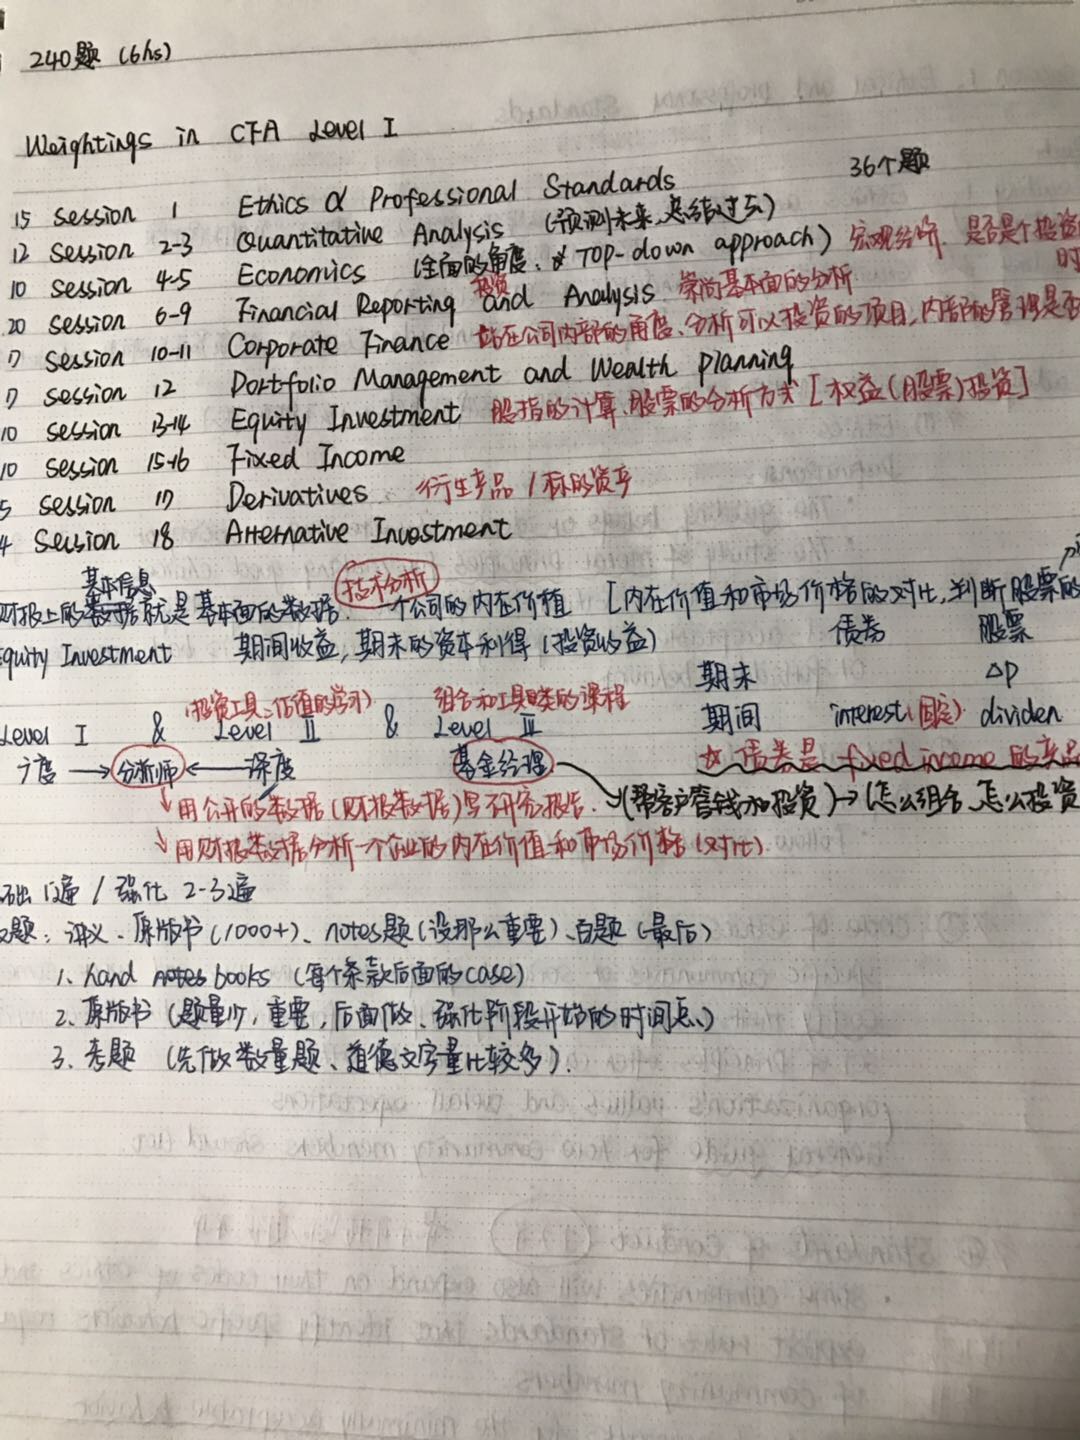 240题 (6hs)
Weightings in CFA Level I
36个题
15 session 1 Ethics & Professional Standards
12 session 2-3 Quantitative Analysis (预测未来,总结过去)
10 session 4-5 Economics (全面的角度, TOP-down approach) 宏观经济, 是否是个投资
时
20 session 6-9 Financial Reporting and Analysis 崇尚基本面的分析
投资
7 session 10-11 Corporate Finance 站在公司内部的角度、分析可以投资的项目,内部的管理是否
7 session 12 Portfolio Management and Wealth Planning
10 session 13-14 Equity Investment 股指的计算、股票的分析方式 [权益(股票)投资]
10 session 15-16 Fixed Income
5 session 17 Derivatives 衍生产品 / 标的资产
4 Session 18 Alternative Investment
基本信息
技术分析
财报上的数据就是基本面的数据. 一个公司的内在价值 [内在价值和市场价格的对比,判断股票的
Equity Investment 期间收益,期末的资本利得(投资收益) 债券 股票
期末 ΔP
(投资工具:估值的学习) 组合和工具类的课程
Level I & Level II & Level III 期间 interest(固定) dividen
广度 → 分析师 ← 深度 基金经理 ☆ 债券是 fixed income 的产品
↘ 用公开的数据(财报数据)写研究报告. (帮客户管钱和投资) → (怎么组合、怎么投资
↘ 用财报数据分析一个企业的内在价值和市场价格(对比)
基础1遍 / 强化 2-3遍
题: 讲义、原版书(1000+)、notes题(没那么重要)、百题(最后)
1、hand notes books (每个条款后面的case)
2、原版书 (题量少,重要,后面做、强化阶段开始的时间点)
3、考题 (先做数量题、道德文字量比较多).